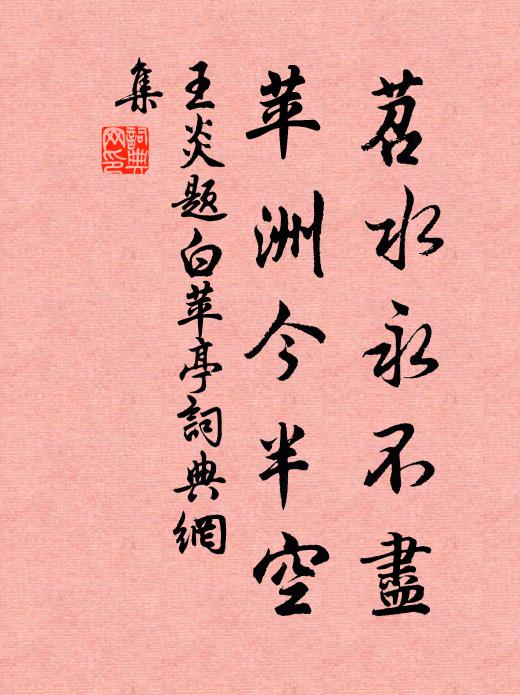 苕水永不盡
苹洲今半空
王炎題白苹亭詞典網
集
詞典
网印